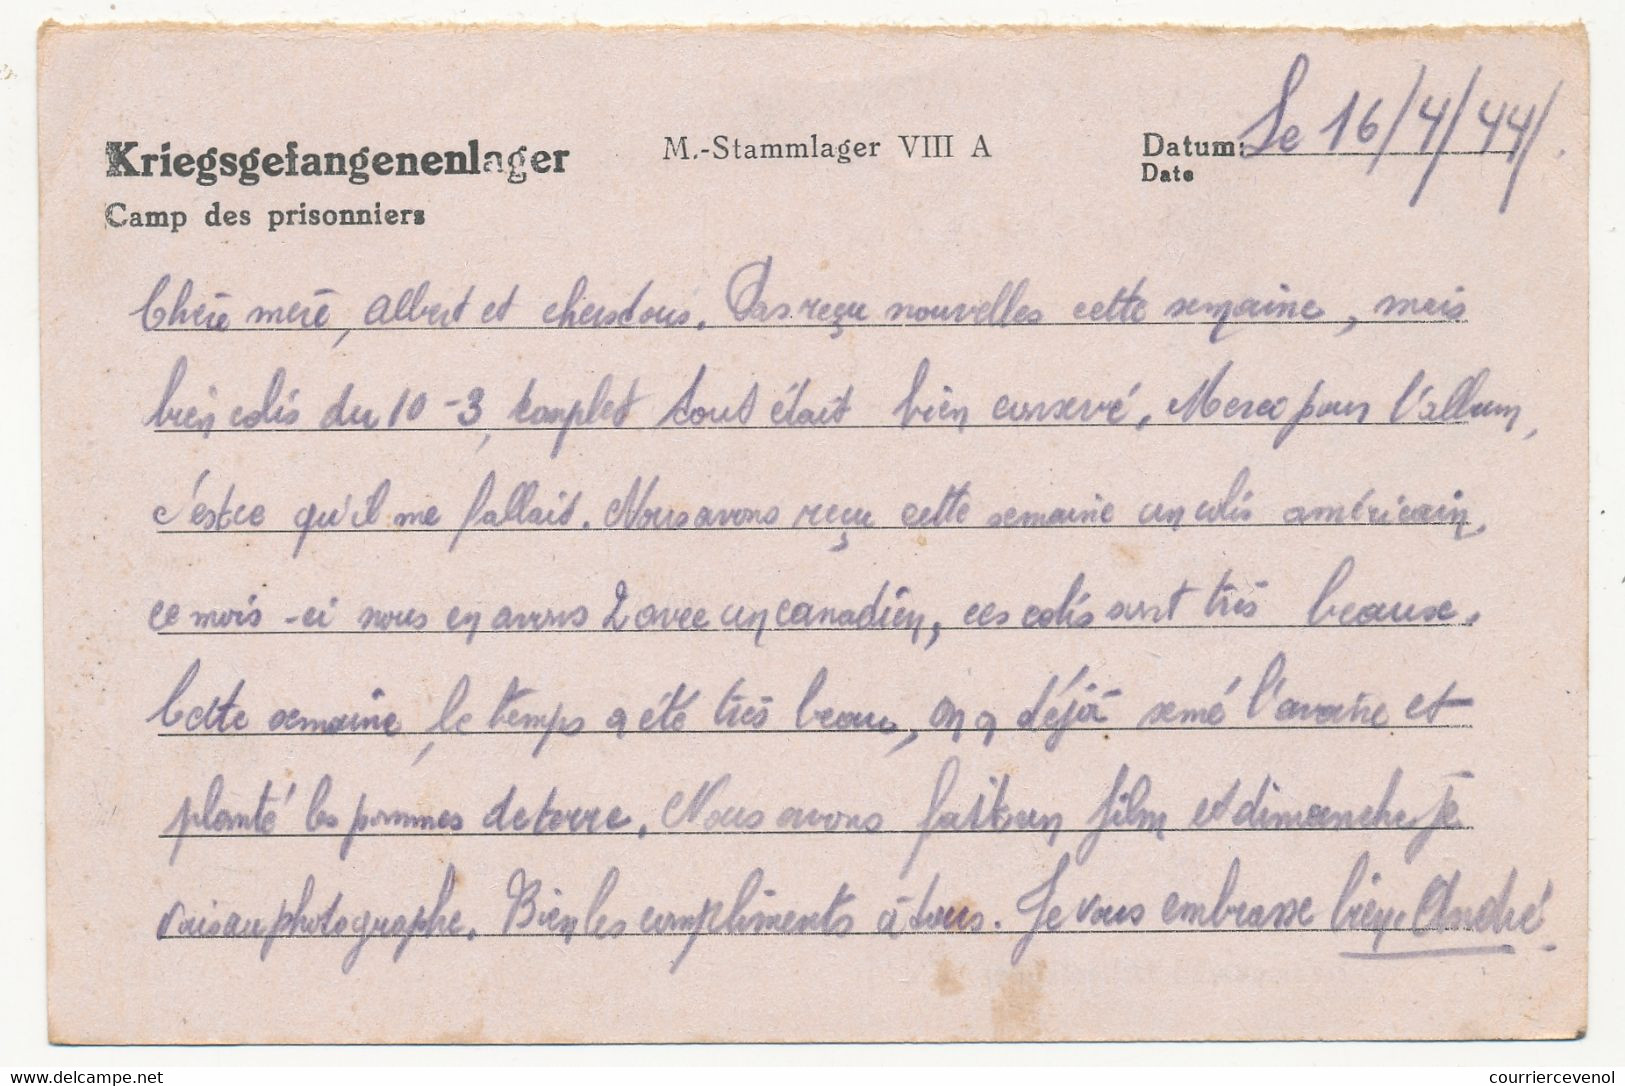 Kriegsgefangenenlager
M.-Stammlager VIII A
Datum: Le 16/4/44/.
Date
Camp des prisonniers
Chère mère, Albert et chers tous. Pas reçu nouvelles cette semaine, mais
bien colis du 10-3, complet tout était bien conservé. Merci pour l'allum,
c'est ce qu'il me fallait. Nous avons reçu cette semaine un colis américain,
ce mois-ci nous en avons 2 avec un canadien, ces colis sont très beaux.
Cette semaine, le temps a été très beau, on a déjà semé l'avoine et
planté les pommes de terre. Nous avons fait un film et dimanche je
vais au photographe. Bien les compliments à tous. Je vous embrasse bien. André
courriercevenol
www.delcampe.net